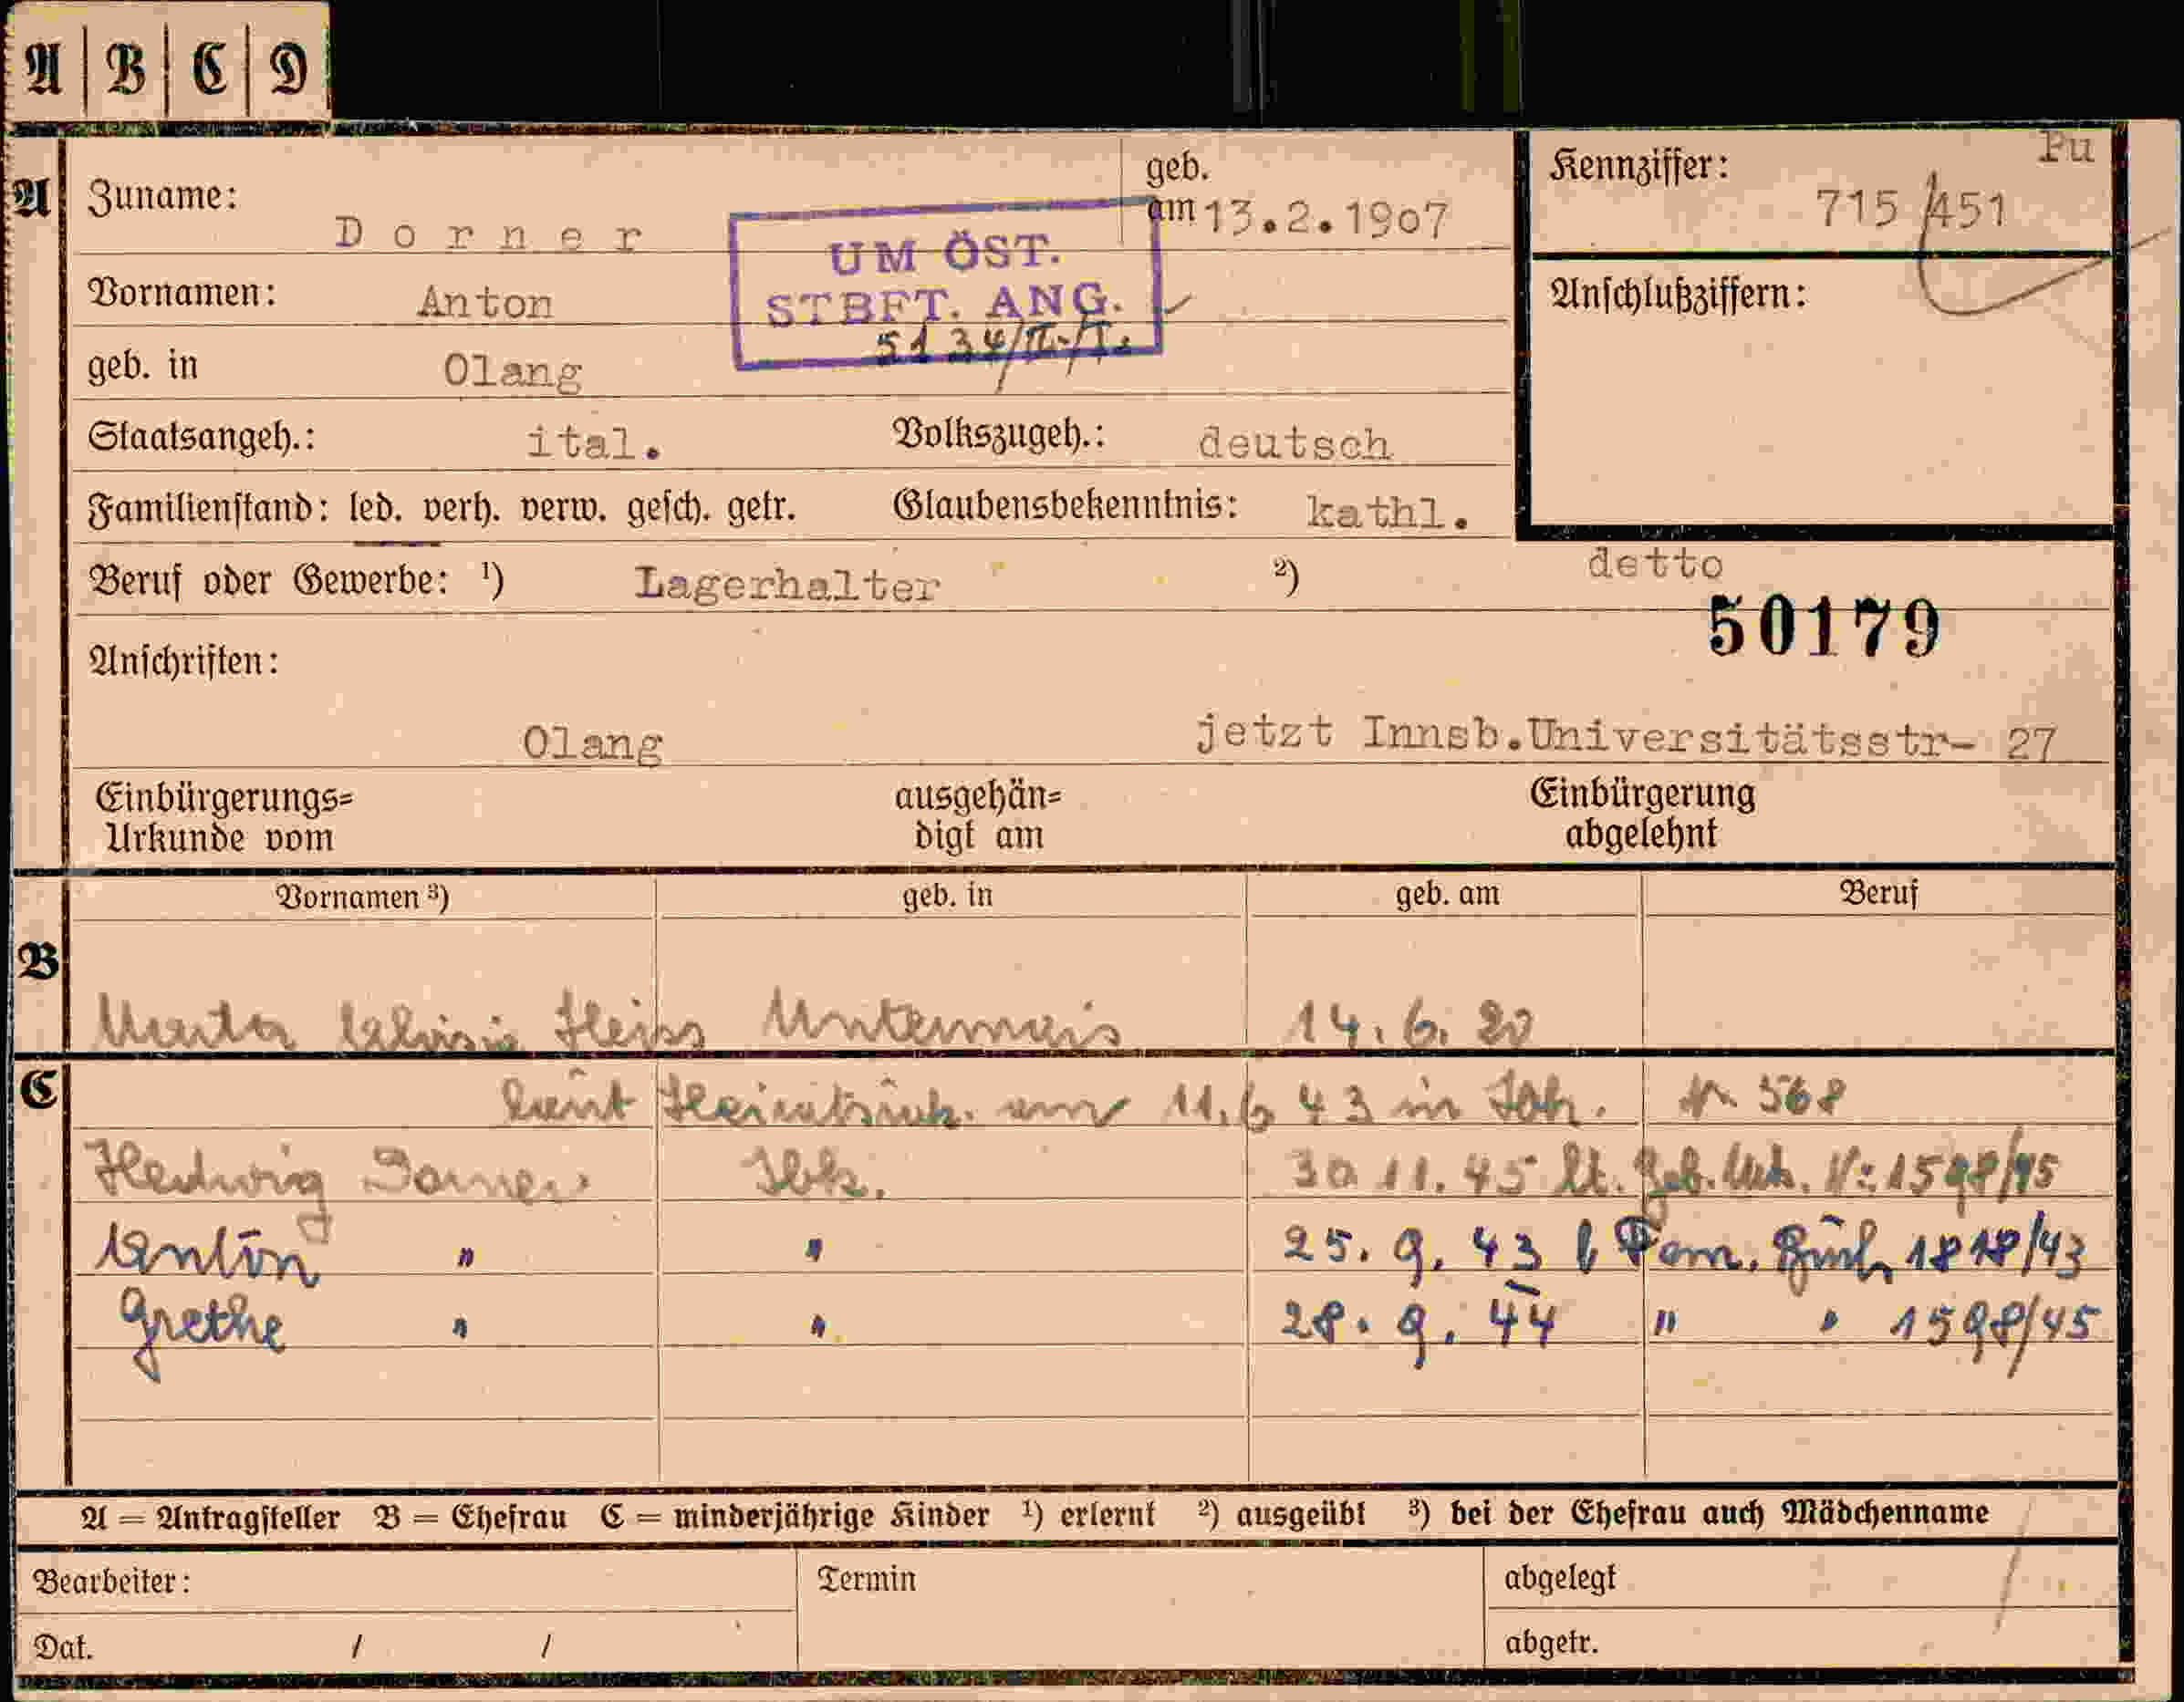 A | B | C | D
A
Zuname: Dorner
geb. am 13.2.1907
Kennziffer: 715/451
Pu
UM ÖST.
STBFT. ANG.
5134/II-/I.
Vornamen: Anton
Anschlußziffern:
geb. in Olang
Staatsangeh.: ital. Volkszugeh.: deutsch
Familienstand: led. verh. verw. gesch. getr. Glaubensbekenntnis: kathl.
Beruf oder Gewerbe: ¹) Lagerhalter ²) detto
50179
Anschriften:
Olang jetzt Innsb.Universitätsstr- 27
Einbürgerungs= ausgehän= Einbürgerung
Urkunde vom digt am abgelehnt
Vornamen ³) geb. in geb. am Beruf
B
Heiss Untermais 14. 6. 20
C
laut am 11.6 43 in Nr. 568
Hedwig Dorner Ibk. 30 11. 45 lt. Geb. Urk. Nr. 1598/45
Anton " " 25. 9. 43 Fam. Buch 1818/43
Grethe " " 28. 9. 44 " " 1598/45
A = Antragsteller B = Ehefrau C = minderjährige Kinder ¹) erlernt ²) ausgeübt ³) bei der Ehefrau auch Mädchenname
Bearbeiter: Termin abgelegt
Dat. / / abgetr.